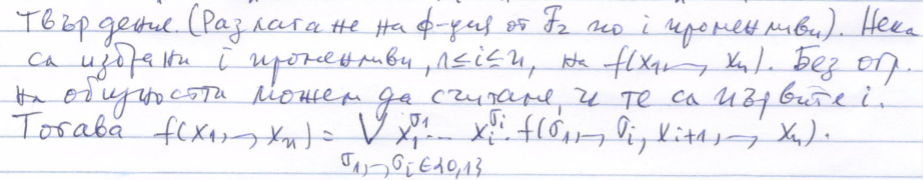 Твърдение. (Разлагане на ф-ция от F₂ по i променливи). Нека
са избрани i променливи, 1≤i≤n, на f(x₁,→, xₙ). Без огр.
на общността можем да считаме, ч те са първите i.
Тогава f(x₁,→, xₙ) = ⋁ x₁^σ₁… xᵢ^σᵢ. f(σ₁,→, σᵢ, xᵢ₊₁,→, xₙ).
σ₁,→,σᵢ∈{0,1}